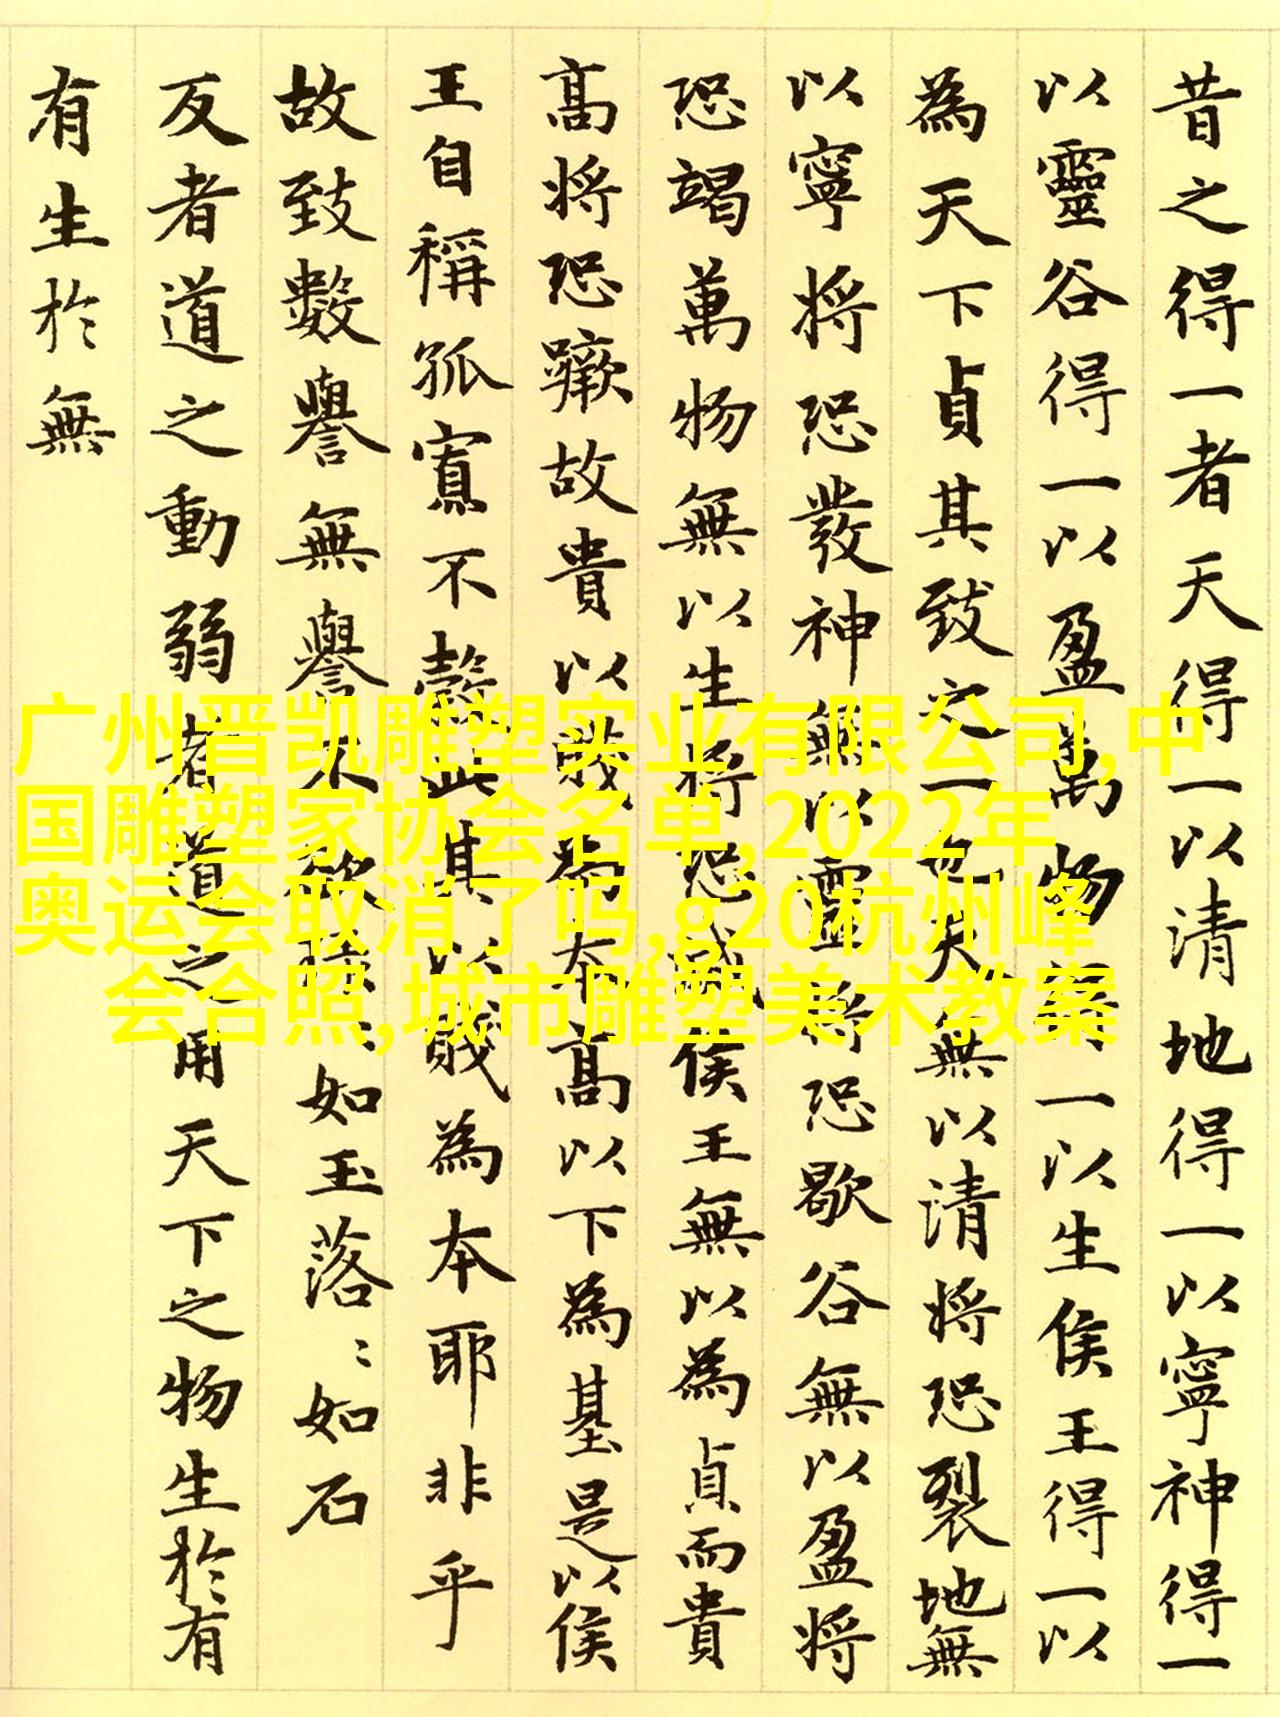 昔之得一者天得一以清地得一以寧神得一
以靈谷得一以盈萬物得一以生侯王得一以
為天下貞其致之一也天無以清将恐裂地無
以寧将恐發神無以靈将恐歇谷無以盈将
恐竭萬物無以生将恐滅侯王無以為貞而貴
高将恐蹶故貴以賤為本高以下為基是以侯
王自稱孤寡不穀此其以賤為本耶非乎
故致數譽無譽不欲琭〻如玉落〻如石
反者道之動弱者道之用天下之物生於有
有生於無
广州晋凯雕塑实业有限公司,中
国雕塑家协会名单,2022年
奥运会取消了吗,g20杭州峰
会合照,城市雕塑美术教案